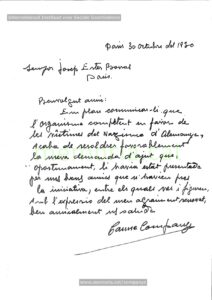 International Institute voor Sociale Geschiedenis
Paris 30 octubre del 1970
Senyor Josep Ester Borral
Paris.
Benvolgut amic:
Em plau comunicar-li que
l'organisme competent en favor de
les víctimes del Nazisme d'Alemanya,
acaba de resoldre favorablement
la meva demanda d'ajut que,
oportunament, li havia estat presentada
per uns bons amics que si havien pres
la iniciativa, entre els quals vos hi figureu.
Amb l'expressió del meu agraiment renovat,
ben amicalment us saluda
Carme Companys